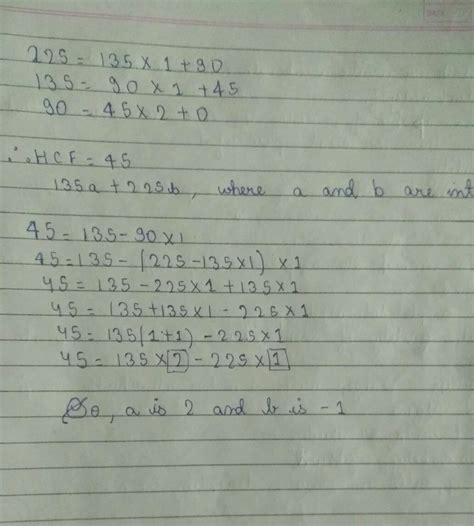 225 = 135 × 1 + 90
135 = 90 × 1 + 45
90 = 45 × 2 + 0
∴ HCF = 45
135a + 225b, where a and b are int
45 = 135 - 90 × 1
45 = 135 - (225 - 135 × 1) × 1
45 = 135 - 225 × 1 + 135 × 1
45 = 135 + 135 × 1 - 225 × 1
45 = 135(1+1) - 225 × 1
45 = 135 × 2 - 225 × 1
So, a is 2 and b is -1